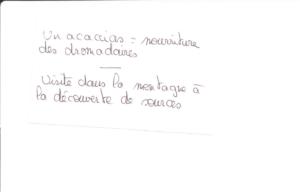 Un acaccias = nourriture
des dromadaires
Visite dans la montagne à
la découverte de sources